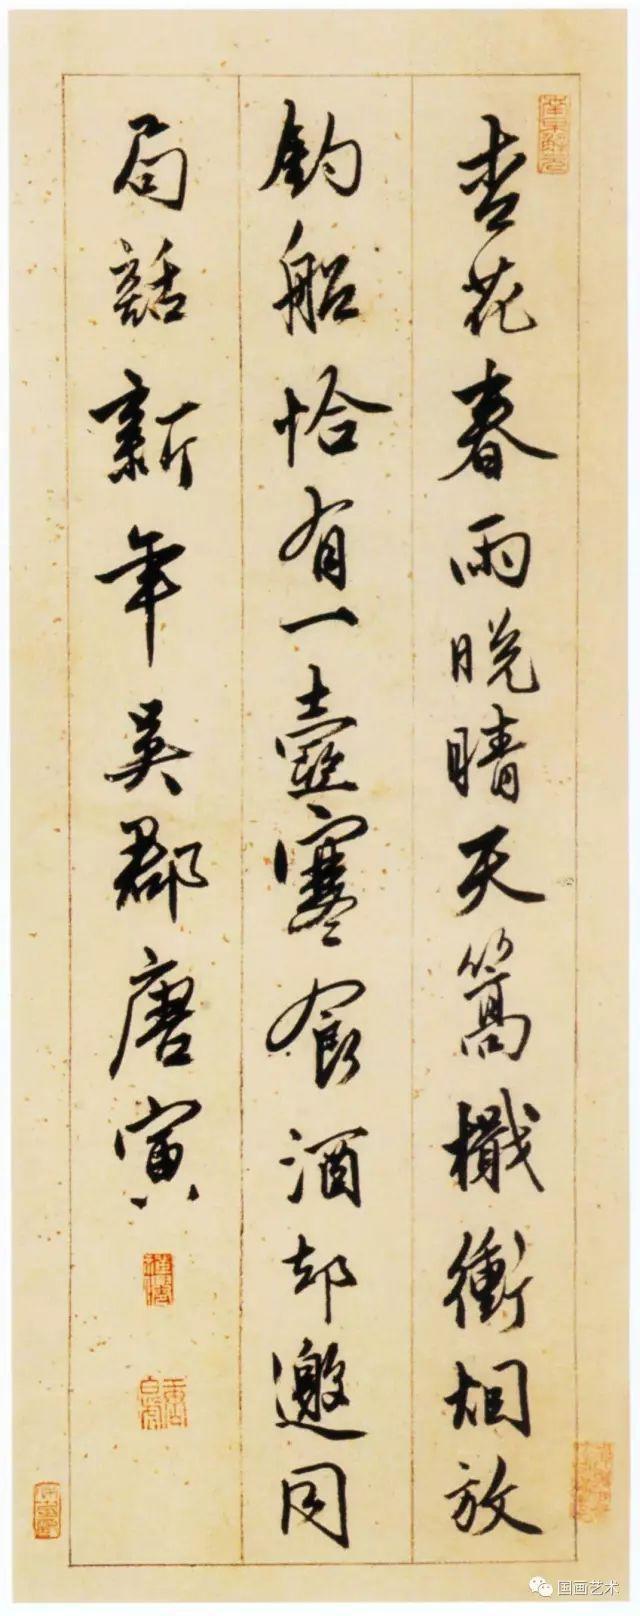 杏花春雨晚晴天篙檝衝烟放
釣船恰有一壺寒食酒却邀同
局話新年吳郡唐寅
国画艺术